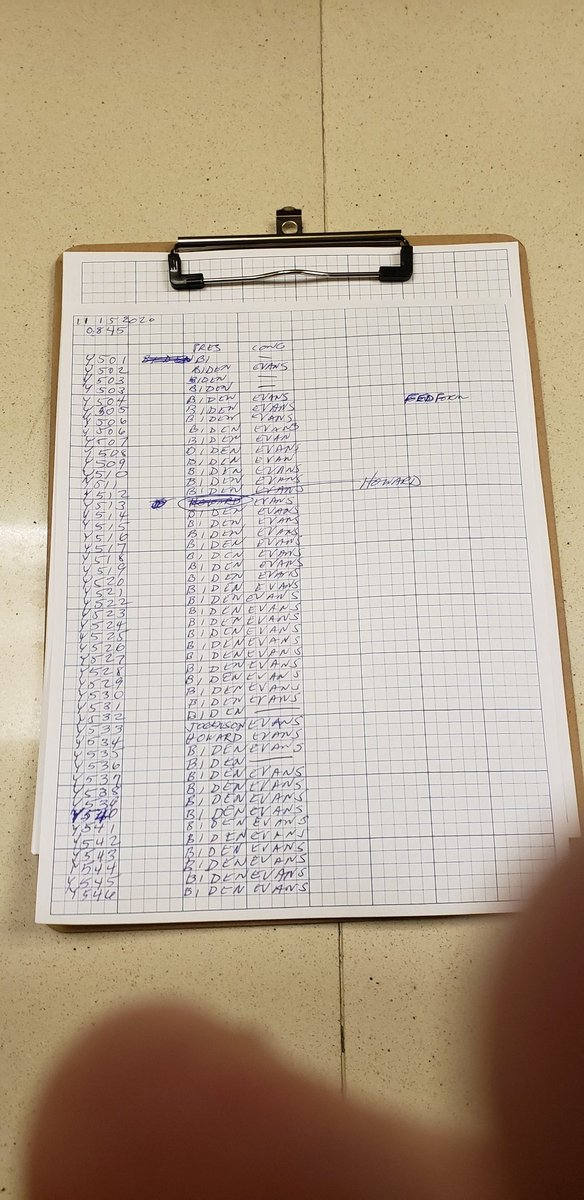 11 15 2020
0845
PRES CONG
Y501 BI —
Y502 BIDEN EVANS
Y503 BIDEN —
Y503 BIDEN —
Y504 BIDEN EVANS
Y505 BIDEN EVANS
Y506 BIDEN EVANS
Y506 BIDEN EVANS
Y507 BIDEN EVAN
Y508 BIDEN EVANS
Y509 BIDEN EVAN
Y510 BIDEN EVANS
Y511 BIDEN EVANS
Y512 BIDEN EVANS HOWARD
Y513 HOWARD EVANS
Y514 BIDEN EVANS
Y515 BIDEN EVANS
Y516 BIDEN EVANS
Y517 BIDEN EVANS
Y518 BIDEN EVANS
Y519 BIDEN EVANS
Y520 BIDEN EVANS
Y521 BIDEN EVANS
Y522 BIDEN EVANS
Y523 BIDEN EVANS
Y524 BIDEN EVANS
Y525 BIDEN EVANS
Y526 BIDEN EVANS
Y527 BIDEN EVANS
Y528 BIDEN EVANS
Y529 BIDEN EVANS
Y530 BIDEN EVANS
Y531 BIDEN EVANS
Y532 BIDEN —
Y533 EVANS
Y534 HOWARD EVANS
Y535 BIDEN EVANS
Y536 BIDEN —
Y537 BIDEN EVANS
Y538 BIDEN EVANS
Y539 BIDEN EVANS
Y540 BIDEN EVANS
Y541 BIDEN EVANS
Y542 BIDEN EVANS
Y543 BIDEN EVANS
Y544 BIDEN EVANS
Y545 BIDEN EVANS
Y546 BIDEN EVANS